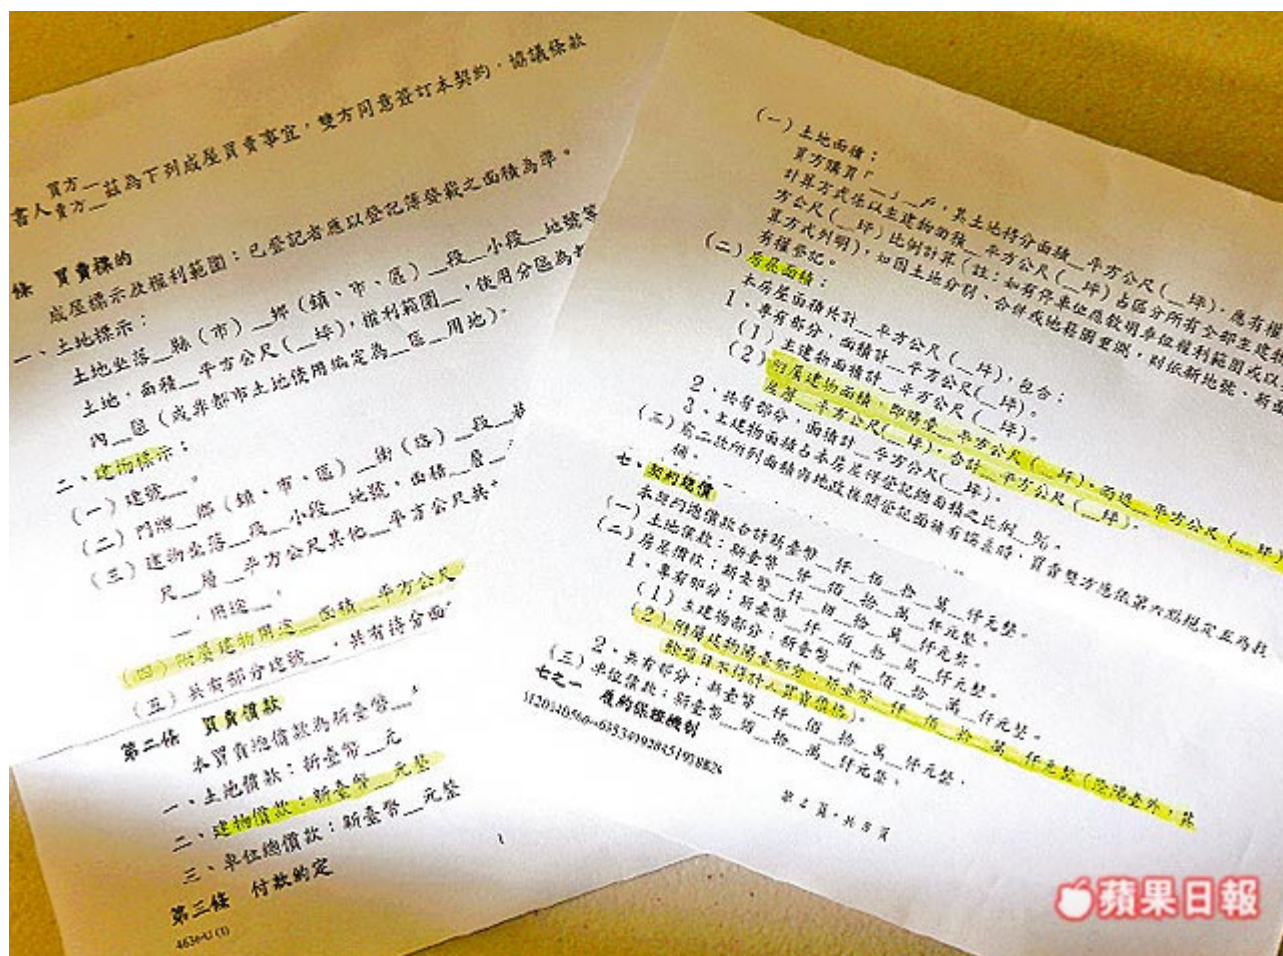 買方__茲為下列成屋買賣事宜，雙方同意簽訂本契約，協議條款
書人賣方__
條 買賣標的
成屋標示及權利範圍：已登記者應以登記簿登載之面積為準。
一、土地標示：
土地坐落__縣（市）__鄉（鎮、市、區）__段__小段__地號等
土地，面積__平方公尺(__坪)，權利範圍__，使用分區為
內__區（或非都市土地使用編定為__區__用地）。
二、建物標示：
（一）建號__。
（二）門牌__鄉（鎮、市、區）__街（路）__段__
（三）建物坐落__段__小段__地號，面積__層__
尺__層__平方公尺其他__平方公尺共
，用途__。
（四）附屬建物用途__面積__平方公尺
（五）共有部分建號__，共有持分面
第二條 買賣價款
本買賣總價款為新臺幣__
一、土地價款：新臺幣__元
二、建物價款：新臺幣__元整
三、車位總價款：新臺幣__元整
第三條 付款約定
4636-U (1)
1
（一）土地面積：
買方購買「__」__戶，其土地持分面積__平方公尺(__坪)，應有權
計算方式係以主建物面積__平方公尺(__坪)占區分所有全部主建物
方公尺(__坪)比例計算（註：如有停車位應敘明車位權利範圍或以
算方式列明），如因土地分割、合併或地籍圖重測，則依新地號、新面
有權登記。
（二）房屋面積：
本房屋面積共計__平方公尺(__坪)，包含：
1、專有部分，面積計__平方公尺(__坪)。
（1）主建物面積計__平方公尺(__坪)。
（2）附屬建物面積，即陽臺__平方公尺(__坪)，雨遮__平方公尺(__坪)
及屋__平方公尺(__坪)，合計__平方公尺(__坪)。
2、共有部分，面積計__平方公尺(__坪)。
3、主建物面積占本房屋得登記總面積之比例__%。
（三）前二款所列面積與地政機關登記面積有誤差時，買賣雙方應依第六點規定互為找
補。
七、契約總價
本契約總價款合計新臺幣__仟__佰__拾__萬__仟元整。
（一）土地價款：新臺幣__仟__佰__拾__萬__仟元整。
（二）房屋價款：新臺幣__仟__佰__拾__萬__仟元整。
1、專有部分：新臺幣__仟__佰__拾__萬__仟元整。
（1）主建物部分：新臺幣__仟__佰__拾__萬__仟元整。
（2）附屬建物陽臺部分：新臺幣__仟__佰__拾__萬__仟元整（除陽臺外，其
餘項目不得計入買賣價格）。
2、共有部分：新臺幣__仟__佰__拾__萬__仟元整。
（三）車位價款：新臺幣__佰__拾__萬__仟元整。
七之一 履約保證機制
第 2 頁，共 8 頁
蘋果日報